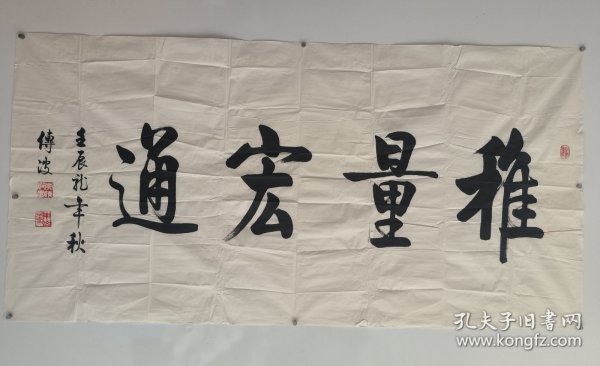 雅量宏通
壬辰龙年秋
傳波
孔夫子旧書网
www.kongfz.com